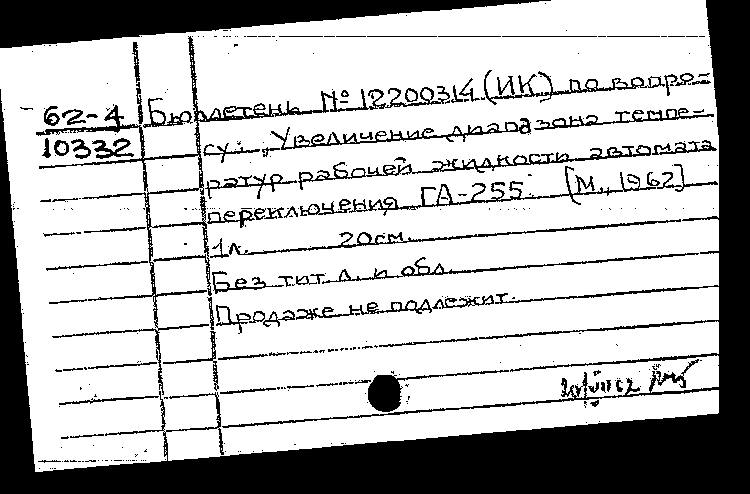 62-4 Бюллетень № 12200314 (ИК) по вопро-
10332 су: "Увеличение диапазона темпе-
ратур рабочей жидкости автомата
переключения ГА-255. [М., 1962]
1л. 20см.
Без тит. л. и обл.
Продаже не подлежит.
20/VII 62